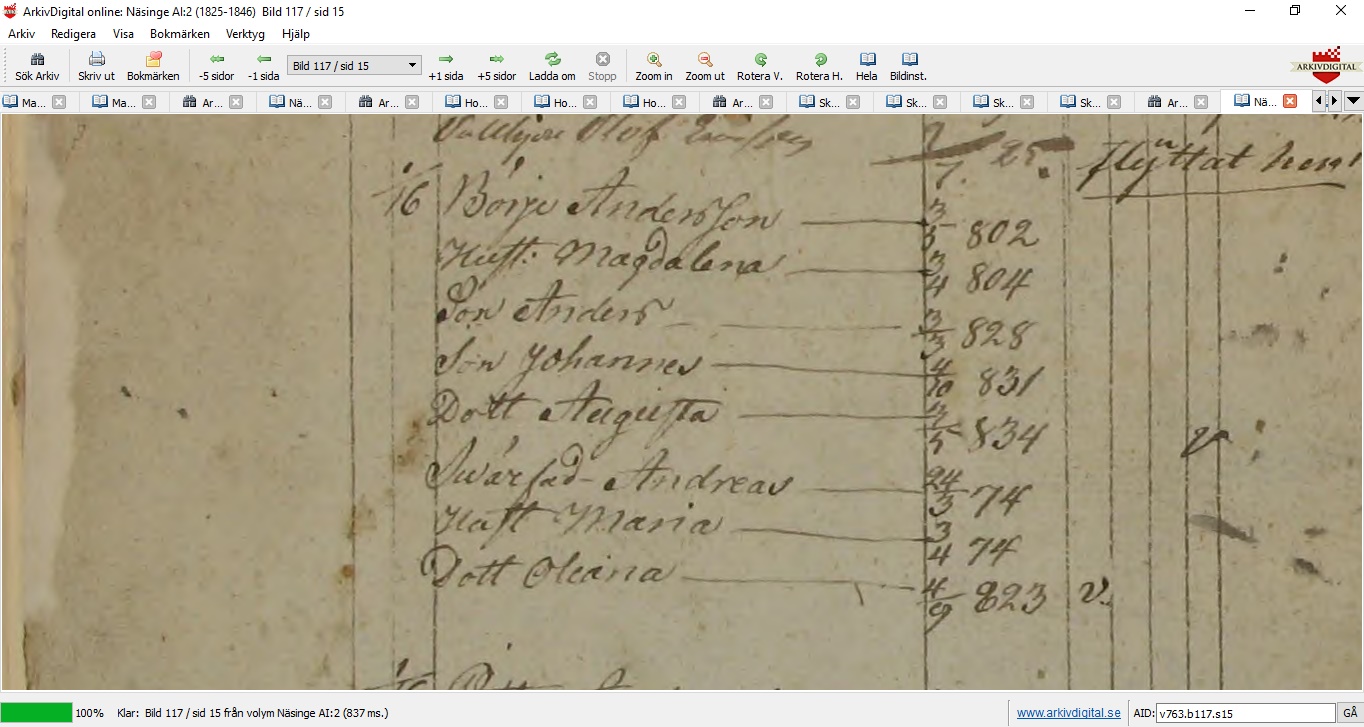 ArkivDigital online: Näsinge AI:2 (1825-1846) Bild 117 / sid 15
Arkiv Redigera Visa Bokmärken Verktyg Hjälp
Sök Arkiv Skriv ut Bokmärken -5 sidor -1 sida Bild 117 / sid 15 +1 sida +5 sidor Ladda om Stopp Zoom in Zoom ut Rotera V. Rotera H. Hela Bildinst.
ARKIVDIGITAL
Ma... Ma... Ar... Nä... Ar... Ho... Ho... Ho... Ar... Sk... Sk... Sk... Sk... Ar... Nä...
Olof 7 25. flyttat
1/16 Börje Andersson 3/5 802
Hust: Magdalena 3/4 804
Son Anders 3/3 828
Son Johannes 4/10 831
Dott Augusta 3/5 834 v
Swärfad- Andreas 24/3 74
Hust Maria 3/4 74
Dott Oleana 4/9 823 v.
100% Klar: Bild 117 / sid 15 från volym Näsinge AI:2 (837 ms.) www.arkivdigital.se AID: v763.b117.s15 GÅ